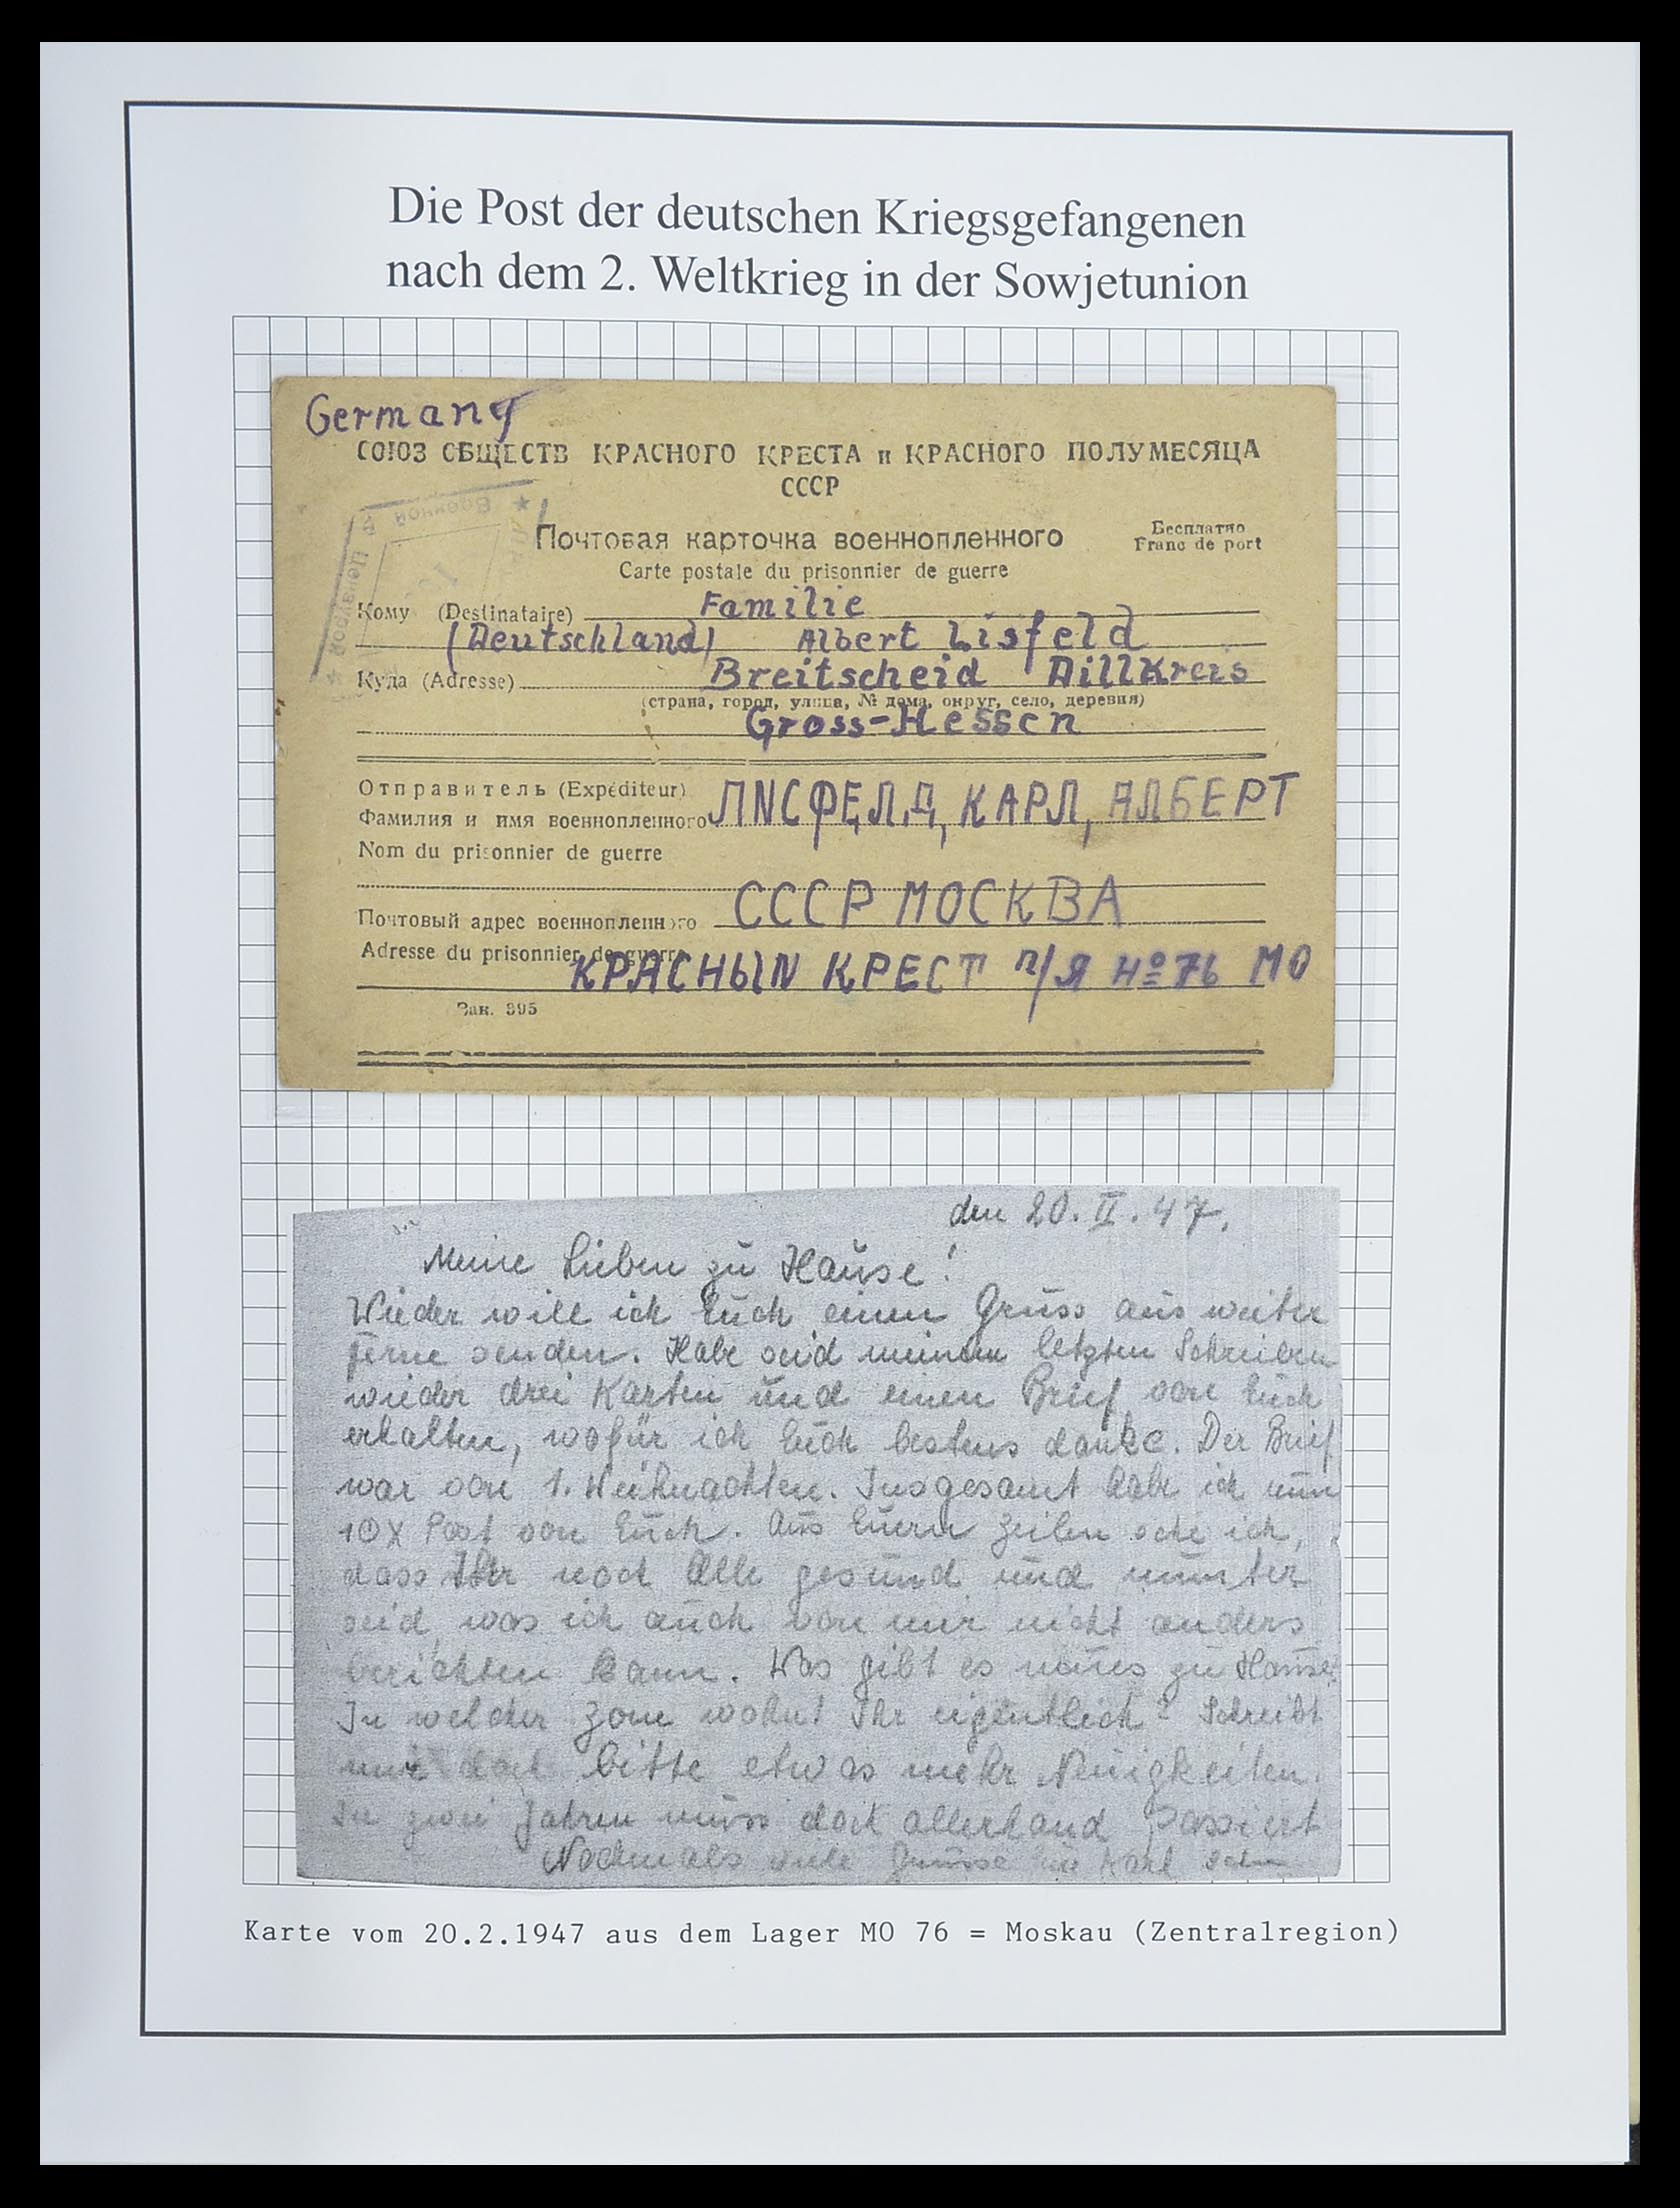 Die Post der deutschen Kriegsgefangenen
nach dem 2. Weltkrieg in der Sowjetunion
Germany
СОЮЗ ОБЩЕСТВ КРАСНОГО КРЕСТА и КРАСНОГО ПОЛУМЕСЯЦА
СССР
Почтовая карточка военнопленного
Бесплатно
Franc de port
Carte postale du prisonnier de guerre
Кому (Destinataire) Familie
(Deutschland) Albert Lisfeld
Куда (Adresse) Breitscheid Dillkreis
(страна, город, улица, № дома, округ, село, деревня)
Gross-Hessen
Отправитель (Expéditeur)
Фамилия и имя военнопленного ЛNСФЕЛД, КАРЛ, АЛБЕРТ
Nom du prisonnier de guerre
Почтовый адрес военнопленного СССР МОСКВА
Adresse du prisonnier de guerre КРАСНЫN КРЕСТ п/Я Нº 76 МО
Зак. 395
den 20. II. 47.
Meine Lieben zu Hause!
Wieder will ich Euch einen Gruss aus weiter
Ferne senden. Habe seid meinem letzten Schreiben
wieder drei Karten und einen Brief von Euch
erhalten, wofür ich Euch bestens danke. Der Brief
war von 1. Weihnachten. Insgesamt habe ich nun
10X Post von Euch. Aus Euern Zeilen sehe ich,
dass Ihr noch Alle gesund und munter
seid, was ich auch von mir nicht anders
berichten kann. Was gibt es neues zu Hause?
In welcher Zone wohnt Ihr eigentlich? Schreibt
mir doch bitte etwas mehr Neuigkeiten.
In zwei Jahren muss doch allerhand Passiert
Nochmals viele Grüsse Karl
Karte vom 20.2.1947 aus dem Lager MO 76 = Moskau (Zentralregion)